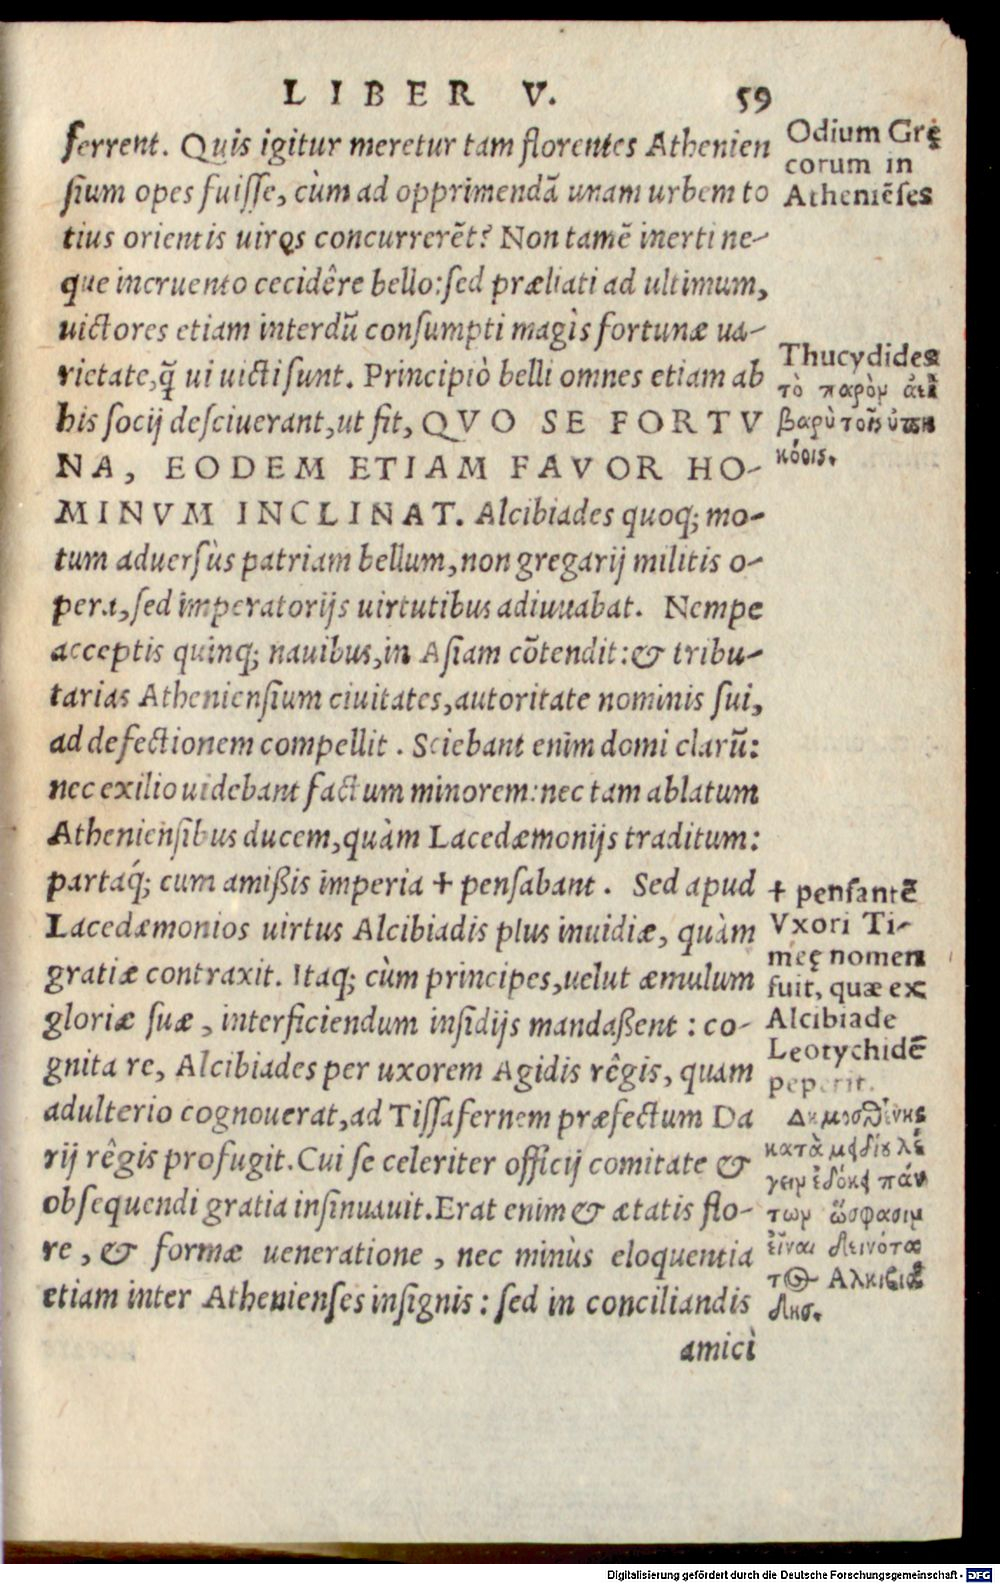 LIBER V. 59
ferrent. Quis igitur meretur tam florentes Athenien
sium opes fuisse, cùm ad opprimendã unam urbem to
tius orientis uires concurrerẽt? Non tamẽ inerti ne-
que incruento cecidêre bello: sed præliati ad ultimum,
uictores etiam interdũ consumpti magìs fortunæ ua-
rietate, q̃ ui uicti sunt. Principiò belli omnes etiam ab
his socij desciuerant, ut fit, QVO SE FORTV
NA, EODEM ETIAM FAVOR HO-
MINVM INCLINAT. Alcibiades quoq; mo-
tum aduersùs patriam bellum, non gregarij militis o-
pera, sed imperatorijs uirtutibus adiuuabat. Nempe
acceptis quinq; nauibus, in Asiam cõtendit: & tribu-
tarias Atheniensium ciuitates, autoritate nominis sui,
ad defectionem compellit. Sciebant enim domi clarũ:
nec exilio uidebant factum minorem: nec tam ablatum
Atheniensibus ducem, quàm Lacedæmonijs traditum:
partaq́; cum amißis imperia + pensabant. Sed apud
Lacedæmonios uirtus Alcibiadis plus inuidiæ, quàm
gratiæ contraxit. Itaq; cùm principes, uelut æmulum
gloriæ suæ, interficiendum insidijs mandaßent: co-
gnita re, Alcibiades per uxorem Agidis rêgis, quam
adulterio cognouerat, ad Tissafernem præfectum Da
rij rêgis profugit. Cui se celeriter officij comitate &
obsequendi gratia insinuauit. Erat enim & ætatis flo-
re, & formæ ueneratione, nec minùs eloquentia
etiam inter Athenienses insignis: sed in conciliandis
amici
Odium Grę
corum in
Atheniẽses
Thucydides
τὸ παρὸν ἀεὶ
βαρὺ τοῖς ὑπη
κόοις.
+ pensantẽ
Vxori Ti-
męę nomen
fuit, quæ ex
Alcibiade
Leotychidẽ
peperit.
Δημοσθένης
κατὰ μειδίου λέ
γειν ἐδόκει πάν
των ὥς φασιν
εἶναι δεινότα
τος Ἀλκιβιά
δης.